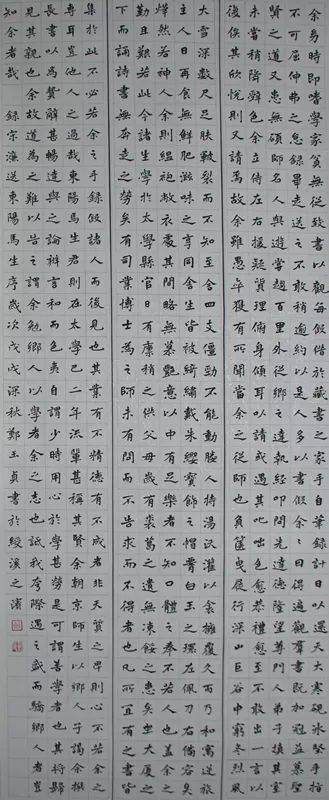 余幼時即嗜學家貧無從致書以觀每假借於藏書之家手自筆錄計日以還天大寒硯冰堅手指
不可屈伸弗之怠錄畢走送之不敢稍逾約以是人多以書假余余因得遍觀群書既加冠益慕聖
賢之道又患無碩師名人與遊嘗趨百里外從鄉之先達執經叩問先達德隆望尊門人弟子填其室
未嘗稍降辭色余立侍左右援疑質理俯身傾耳以請或遇其叱咄色愈恭禮愈至不敢出一言以
復俟其欣悅則又請焉故余雖愚卒獲有所聞當余之從師也負篋曳屣行深山巨谷中窮冬烈風
大雪深數尺足膚皸裂而不知至舍四支僵勁不能動媵人持湯沃灌以衾擁覆久而乃和寓逆旅
主人日再食無鮮肥滋味之享同舍生皆被綺繡戴朱纓寶飾之帽腰白玉之環左佩刀右備容臭
燁然若神人余則縕袍敝衣處其間略無慕豔意以中有足樂者不知口體之奉不若人也蓋余之
勤且艱若此今諸生學於太學縣官日有廩稍之供父母歲有裘葛之遺無凍餒之患矣坐大廈之
下而誦詩書無奔走之勞矣有司業博士為之師未有問而不告求而不得者也凡所宜有之書皆
集於此不必若余之手錄假諸人而後見也其業有不精德有不成者非天質之卑則心不若余之
專耳豈他人之過哉東陽馬生君則在太學已二年流輩甚稱其賢余朝京師生以鄉人子謁余撰
長書以為贄辭甚暢達與之論辨言和而色夷自謂少時用心於學甚勞是可謂善學者也其將歸
見其親也余故道為學之難以告之謂余勉鄉人以學者余之志也詆我夸際遇之盛而驕鄉人者豈
知余者哉 錄宋濂送東陽馬生序歲次戊戌深秋鄭玉貞書於綏溪之濱